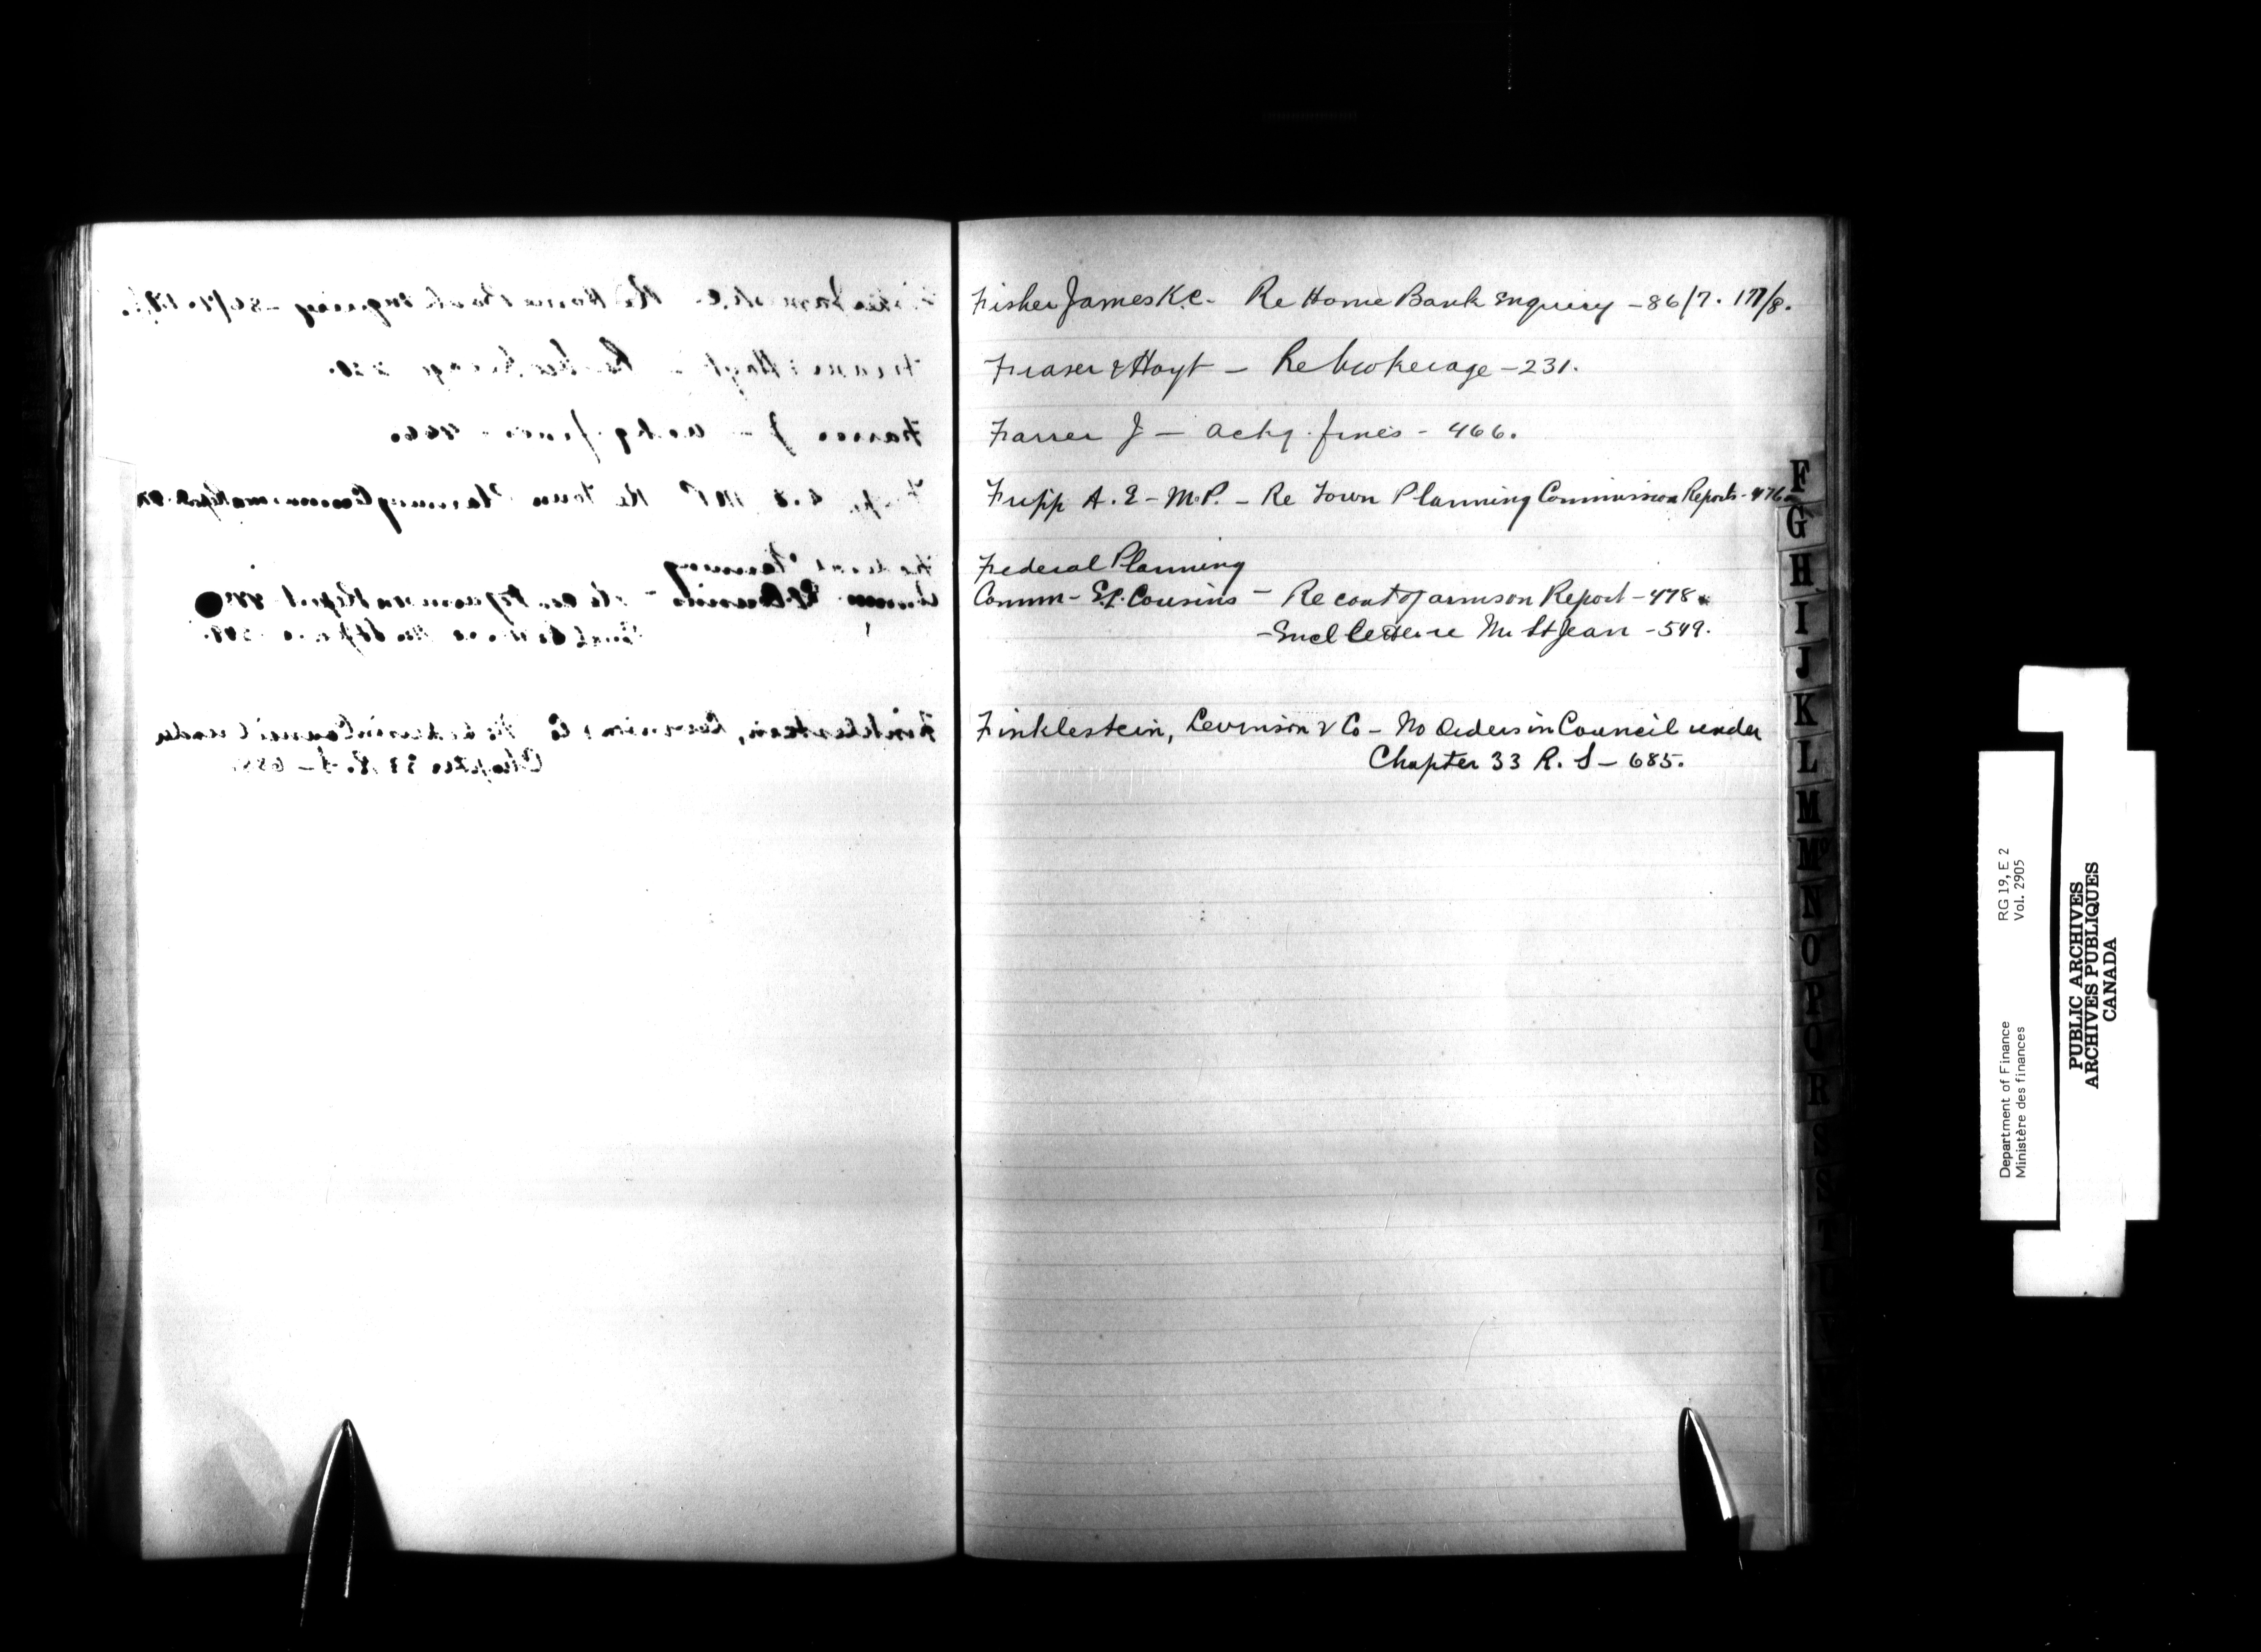 Fisher James K.C. - Re Home Bank Enquiry - 86/7. 177/8.
Fraser & Hoyt - Re brokerage - 231.
Farrer J - ackg. fines - 466.
Fripp A. E - M.P. - Re Town Planning Commission Reports - 476
Federal Planning
Comm - E.L. Cousins - Re cost of Report - 478
- Encl Mr St Jean - 549.
Finklestein, Levinson & Co - No Orders in Council under
Chapter 33 R. S - 685.
F
G
H
I
J
K
L
M
Mc
N
O
P
Q
R
S
T
RG 19, E 2
Vol. 2905
Department of Finance
Ministère des finances
PUBLIC ARCHIVES
ARCHIVES PUBLIQUES
CANADA